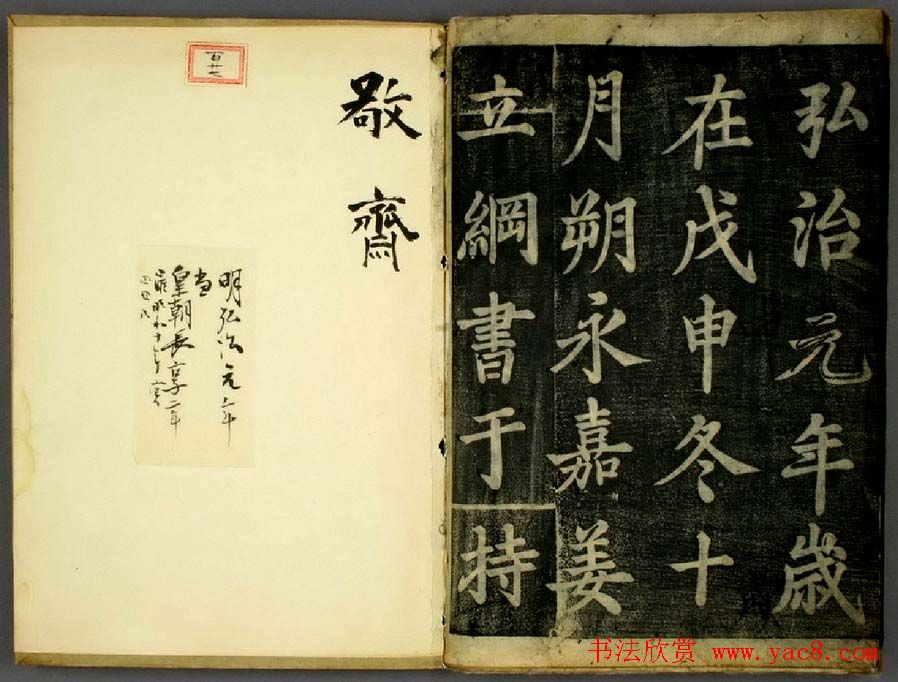 弘治元年歲
在戊申冬十
月朔永嘉姜
立綱書于持
敬齋
百廿七
明弘治元年
当
皇朝長享二年
书法欣赏 www.yac8.com